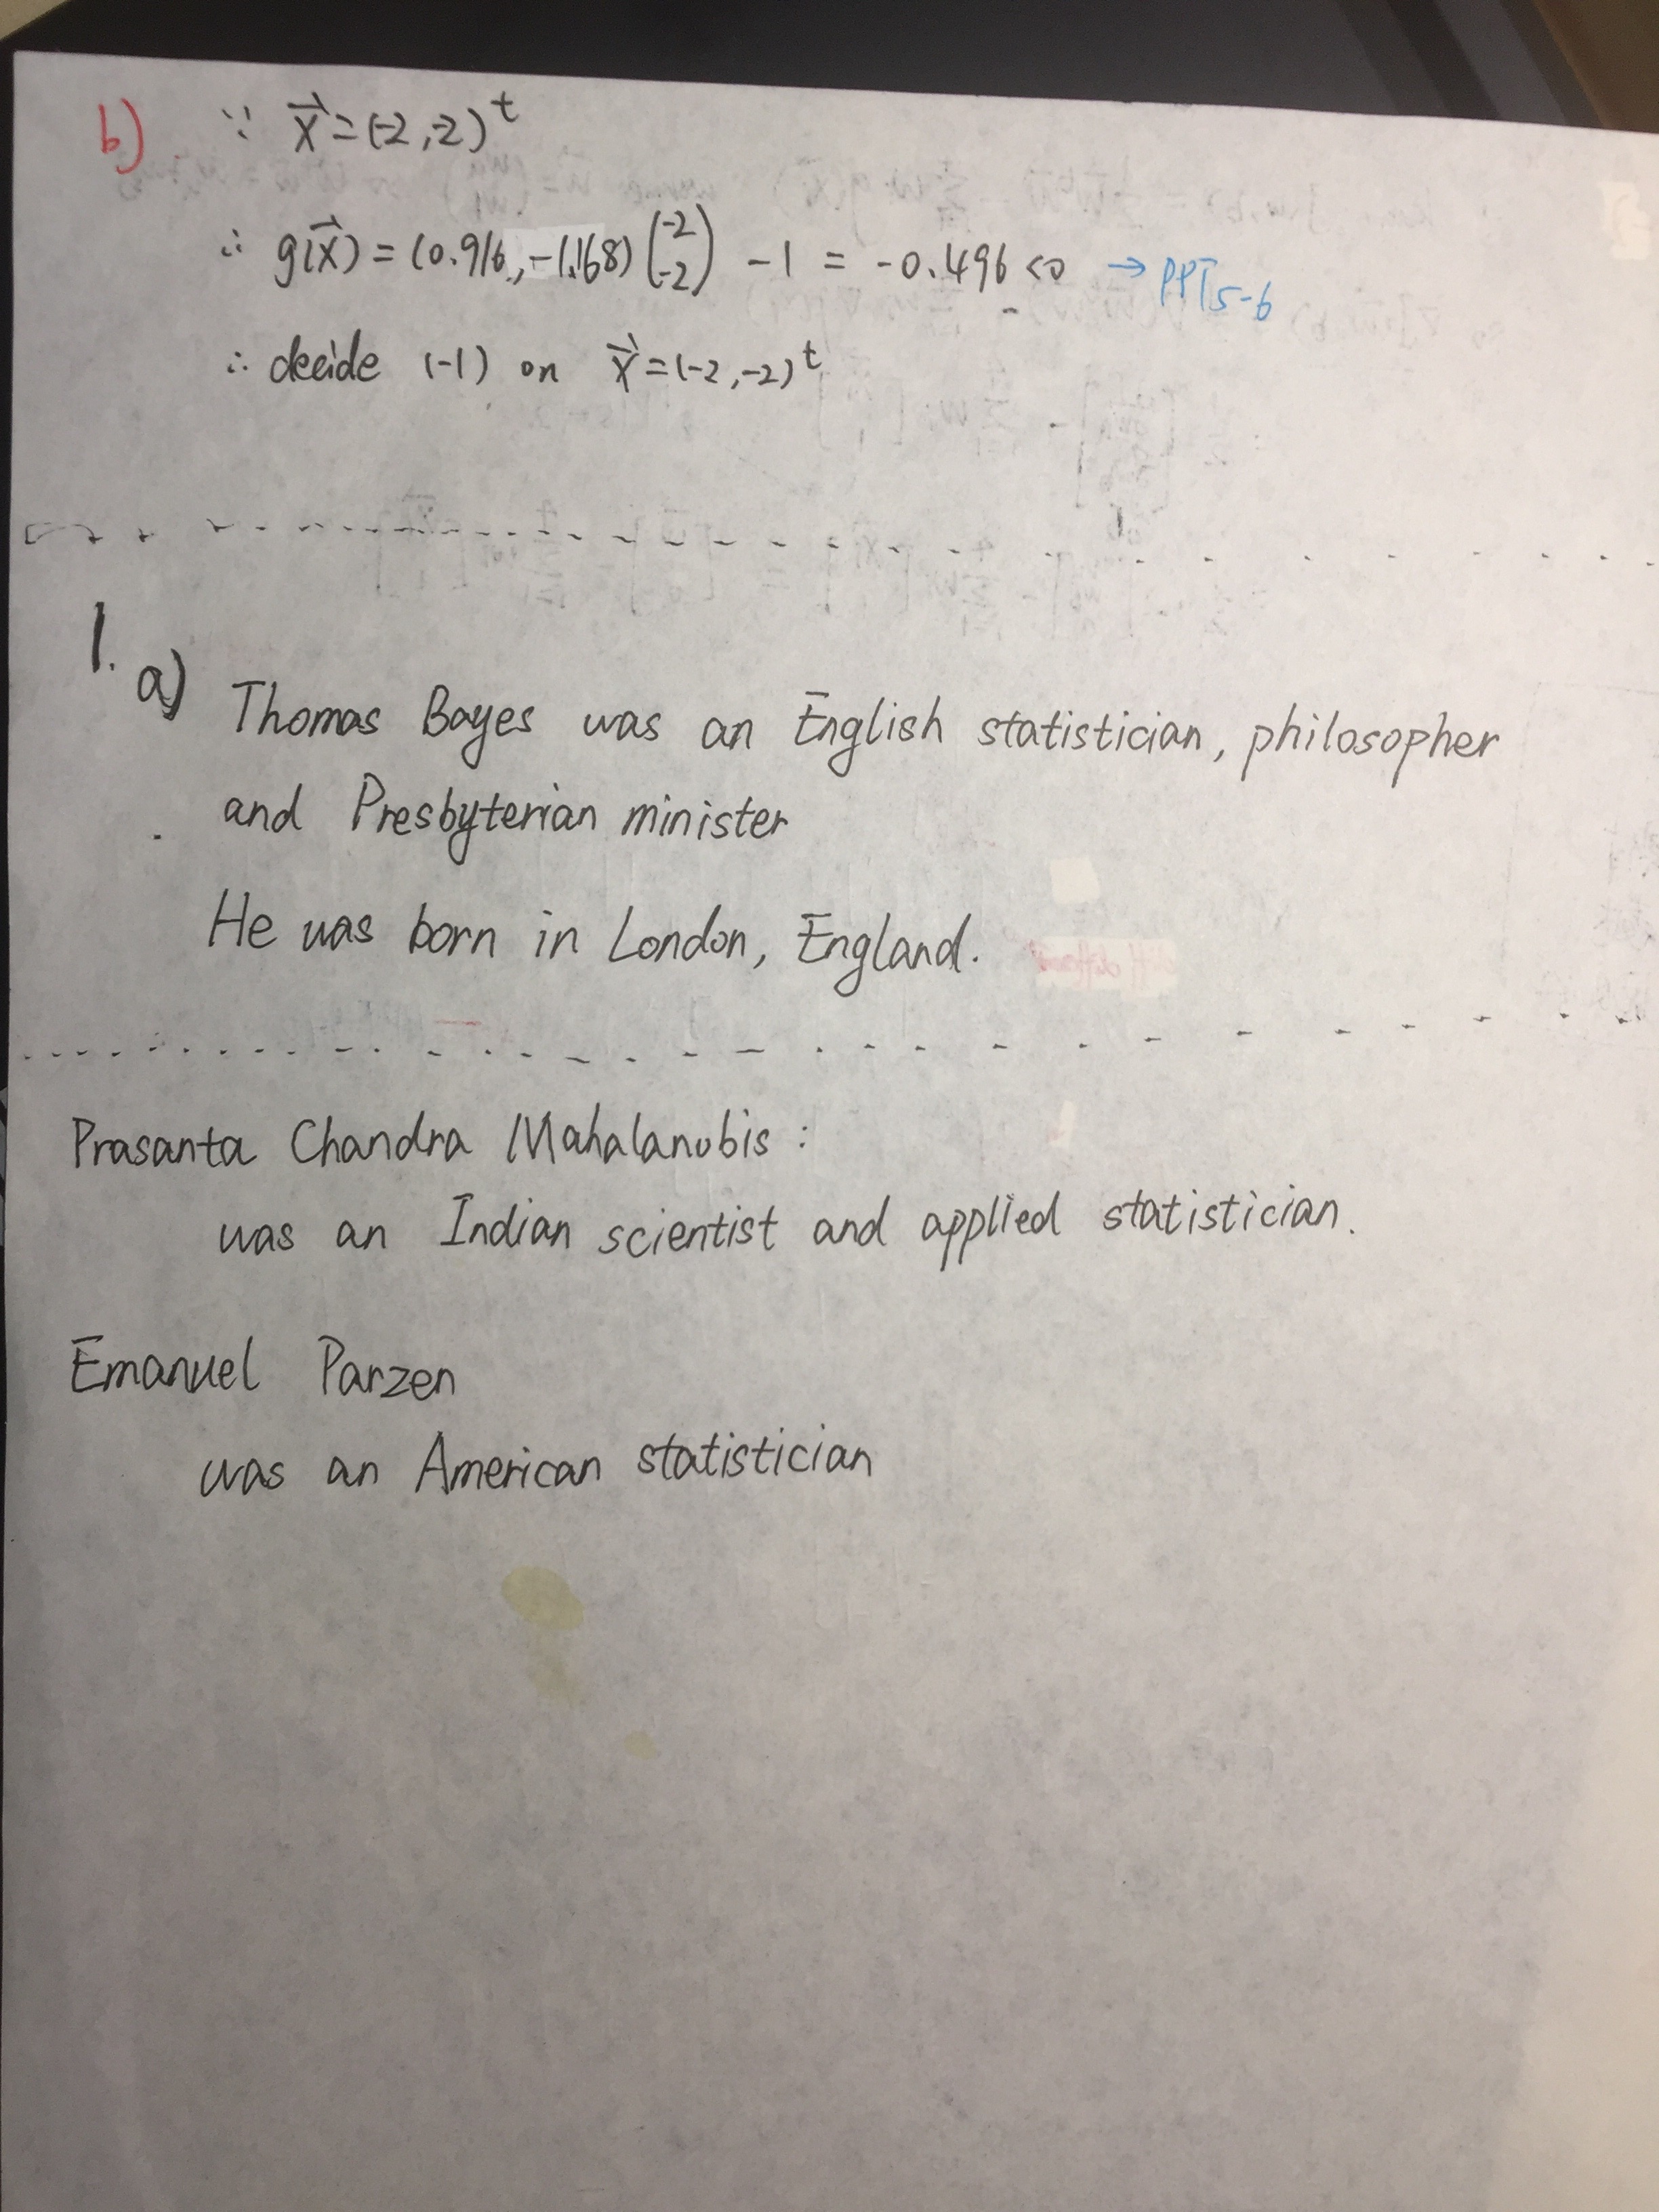 b) ∵ x⃗ = (-2, -2)ᵗ
∴ g(x⃗) = (0.916, -1.168) (-2 -2) - 1 = -0.496 <0 → PPT5-6
∴ decide (-1) on x⃗ = (-2, -2)ᵗ
1. a) Thomas Bayes was an English statistician, philosopher
and Presbyterian minister
He was born in London, England.
Prasanta Chandra Mahalanobis :
was an Indian scientist and applied statistician.
Emanuel Parzen
was an American statistician